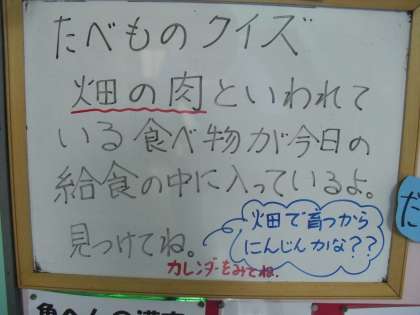 たべものクイズ
畑の肉といわれて
いる食べ物が今日の
給食の中に入っているよ。
見つけてね。
畑で育つから
にんじんかな??
カレンダーをみてね.
だ